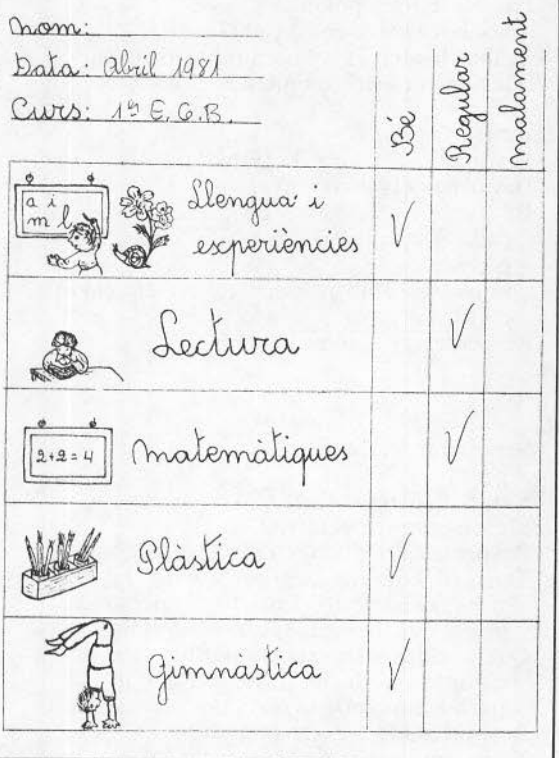 nom:
Data: Abril 1981
Curs: 1er E.G.B.
Bé
Regular
malament
a i
m l
Llengua i
experiències
Lectura
2+2=4
matemàtiques
Plàstica
gimnàstica